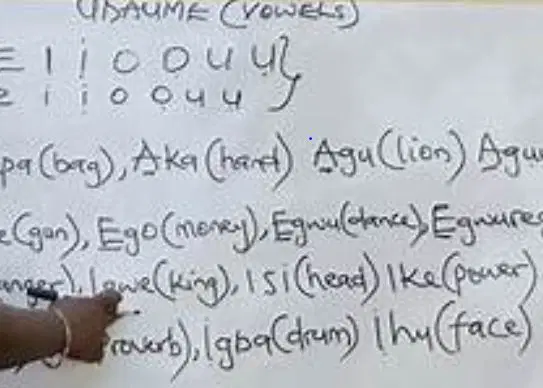 UDAUME (VOWELS)
E I Ị O Ọ U Ụ }
e i ị o ọ u ụ
pa (bag), Aka (hand) Agu (lion) Agu
e (gun), Ego (money), Egwu (dance), Egwure
anger), Igwe (king), Isi (head) Ike (power)
roverb), Ịgba (drum) Ihu (face)